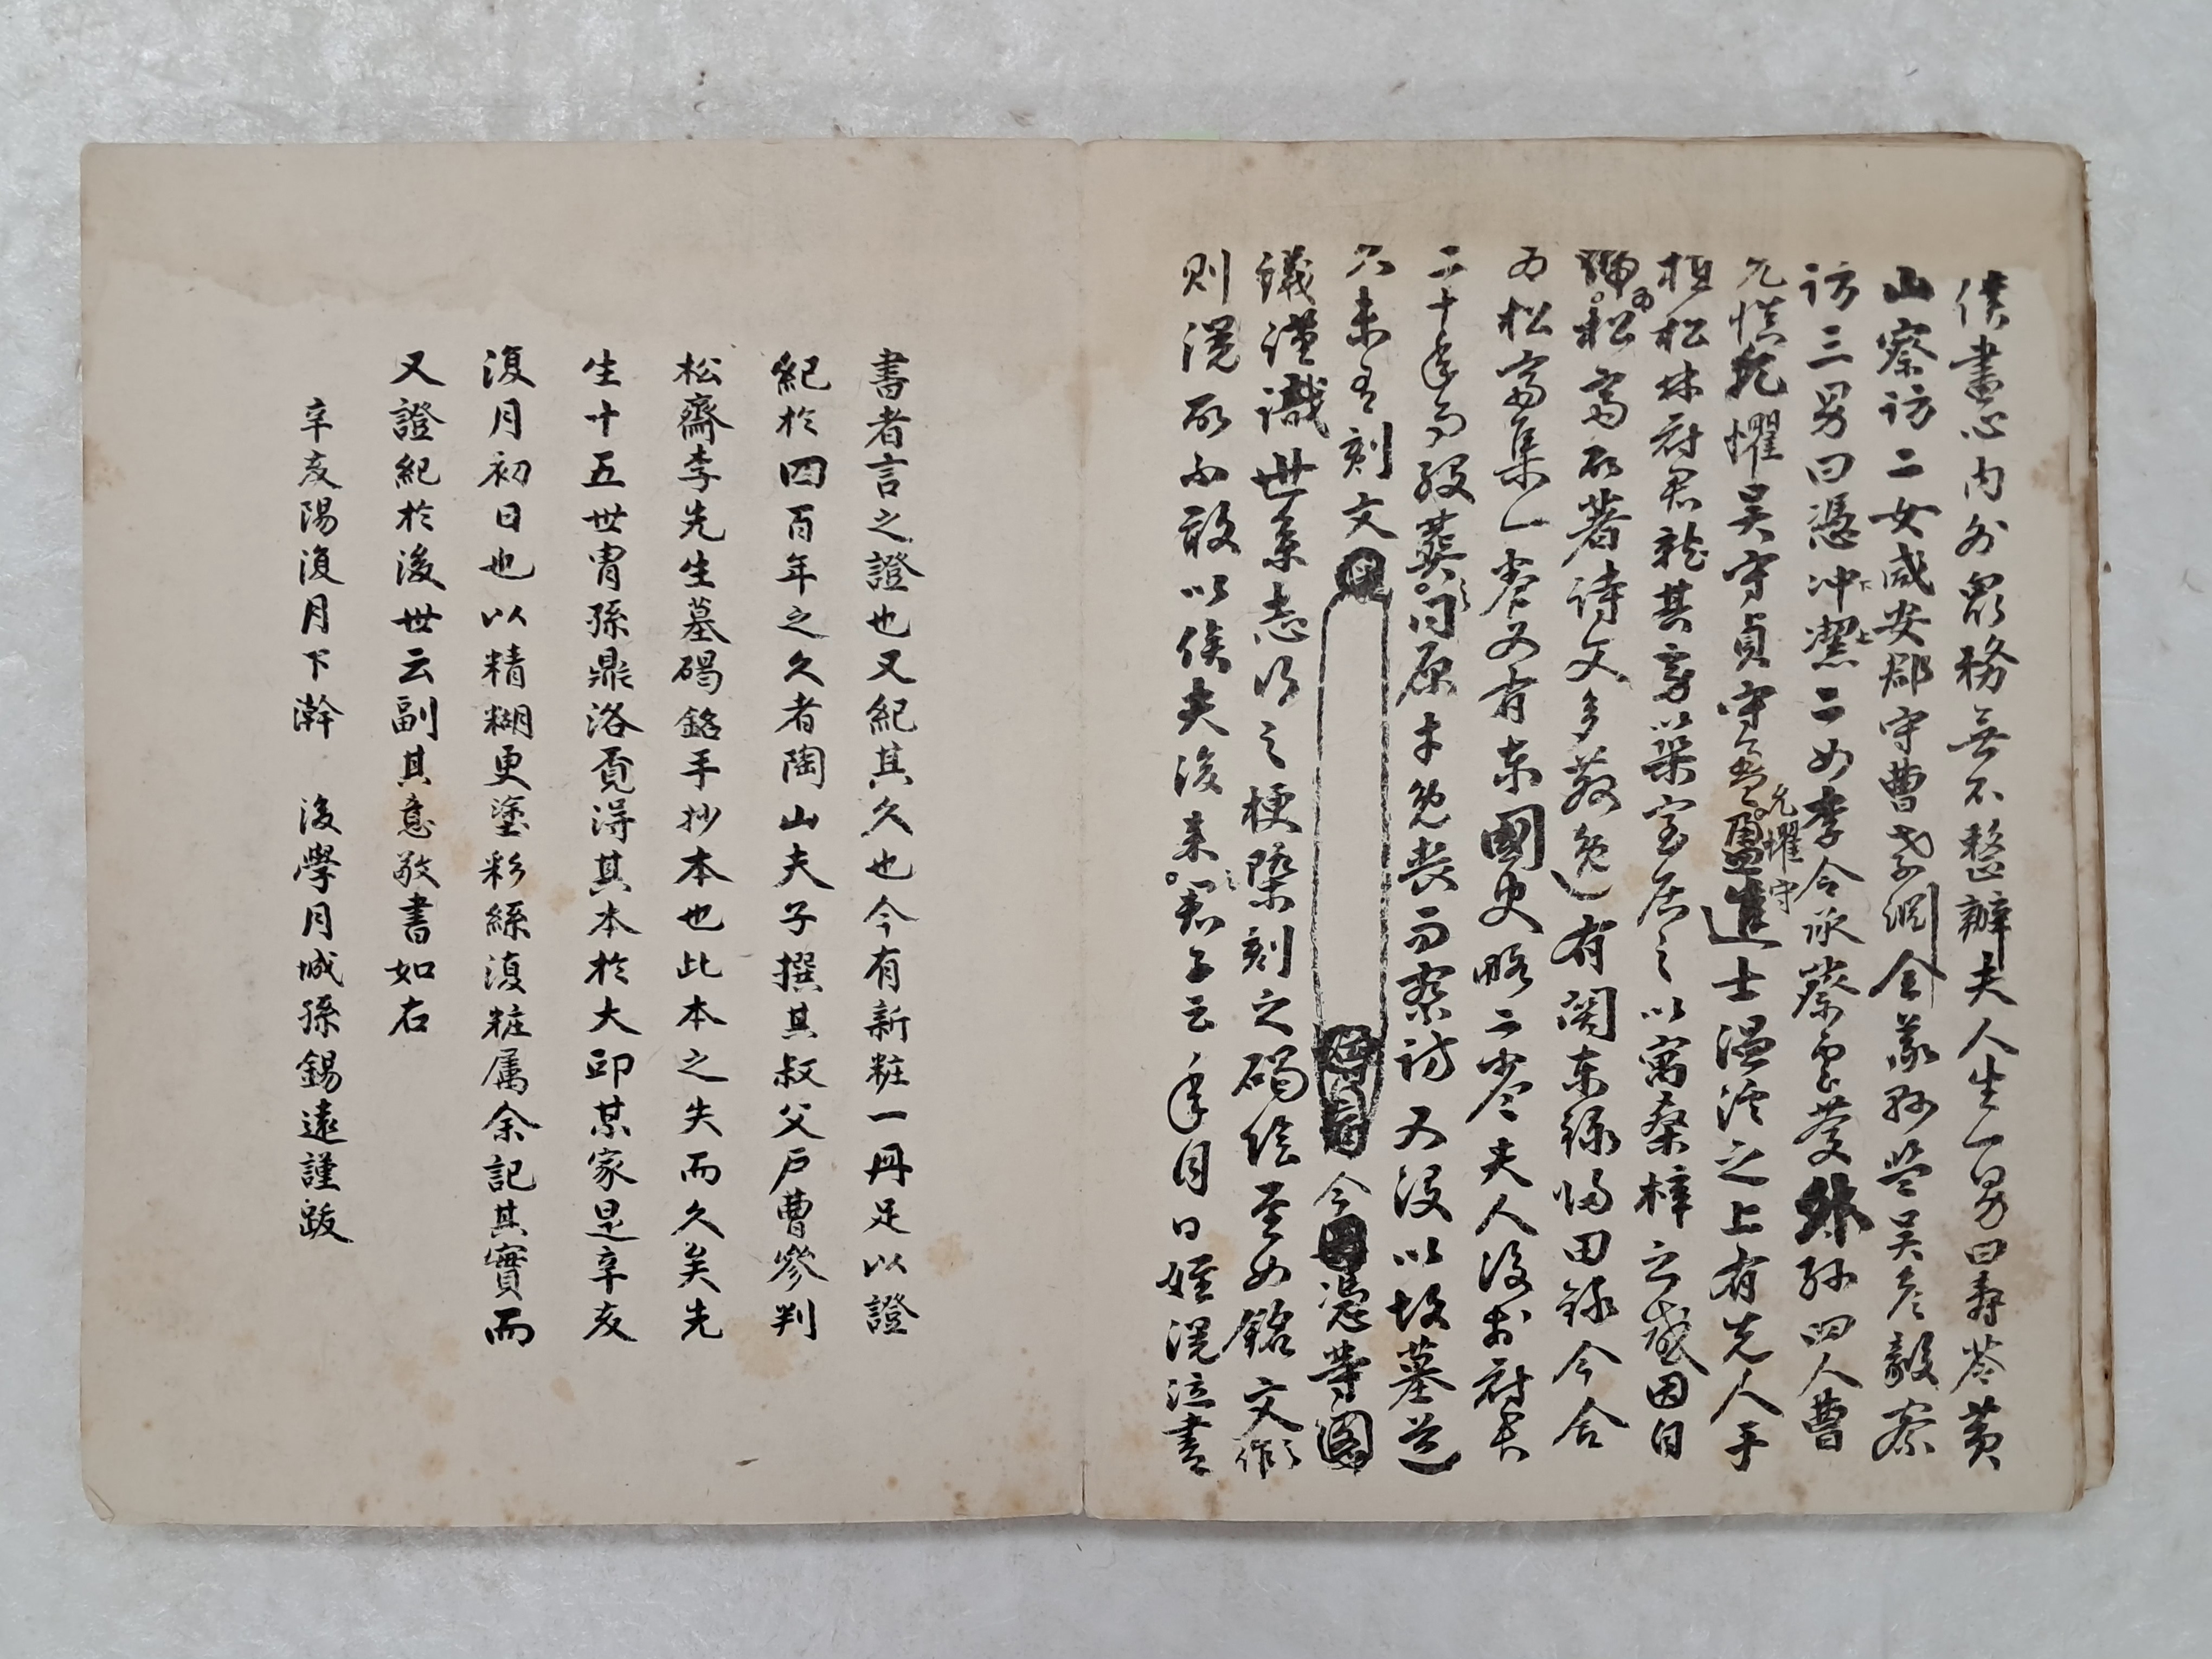 後盡心內外衆務無不整辦夫人生一男曰壽苓黃
山察訪二女咸安郡守曹孝淵僉
訪三男曰憑冲潔二女李令承
允懼吳守貞守盈
允懼守
進士湜滢之上有先人手
植松林府君就其旁以築室居之以寓桑梓之感因自
號松齋所著詩文多散逸有關東錄歸田錄今合
為
為松齋集一卷又有東國史略二卷夫人沒於府君
二十年而殁葬同原未免喪而察訪又沒以故墓道
尺未有刻文
今
憑等圖
議謹識世系志行之梗槩刻之碣陰至如銘文
作
則滉所不敢以俟夫後來君子云年月日姪滉泣書
書者言之證也又紀其久也今有新粧一冊足以證
紀於四百年之久者陶山夫子撰其叔父戶曹參判
松齋李先生墓碣銘手抄本也此本之失而久矣先
生十五世冑孫鼎洛覔得其本於大邱某家是辛亥
復月初日也以精糊更塗彩絲復粧属余記其實而
又證紀於後世云副其意敬書如右
辛亥陽復月下澣 後學月城孫錫遠謹跋